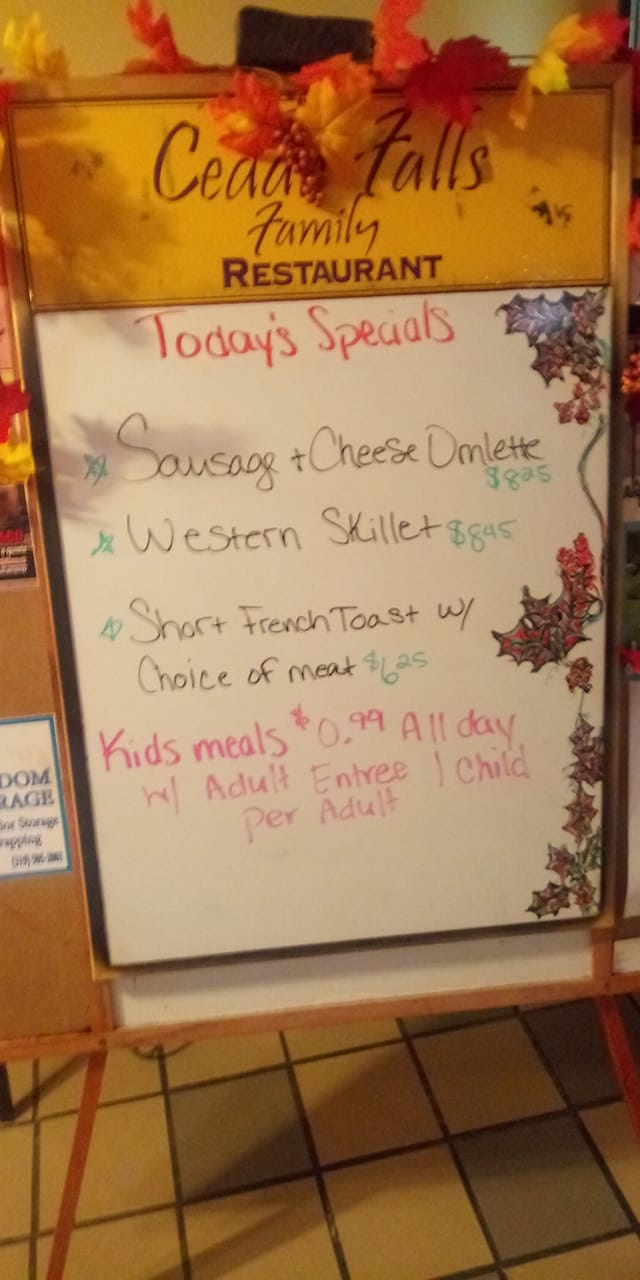 Cedar Falls
Family
RESTAURANT
Today's Specials
Sausage + Cheese Omlette
$825
Western Skillet $845
Short French Toast w/
Choice of meat $625
Kids meals $0.99 All day
w/ Adult Entree 1 Child
per Adult
DOM
RAGE
Storage